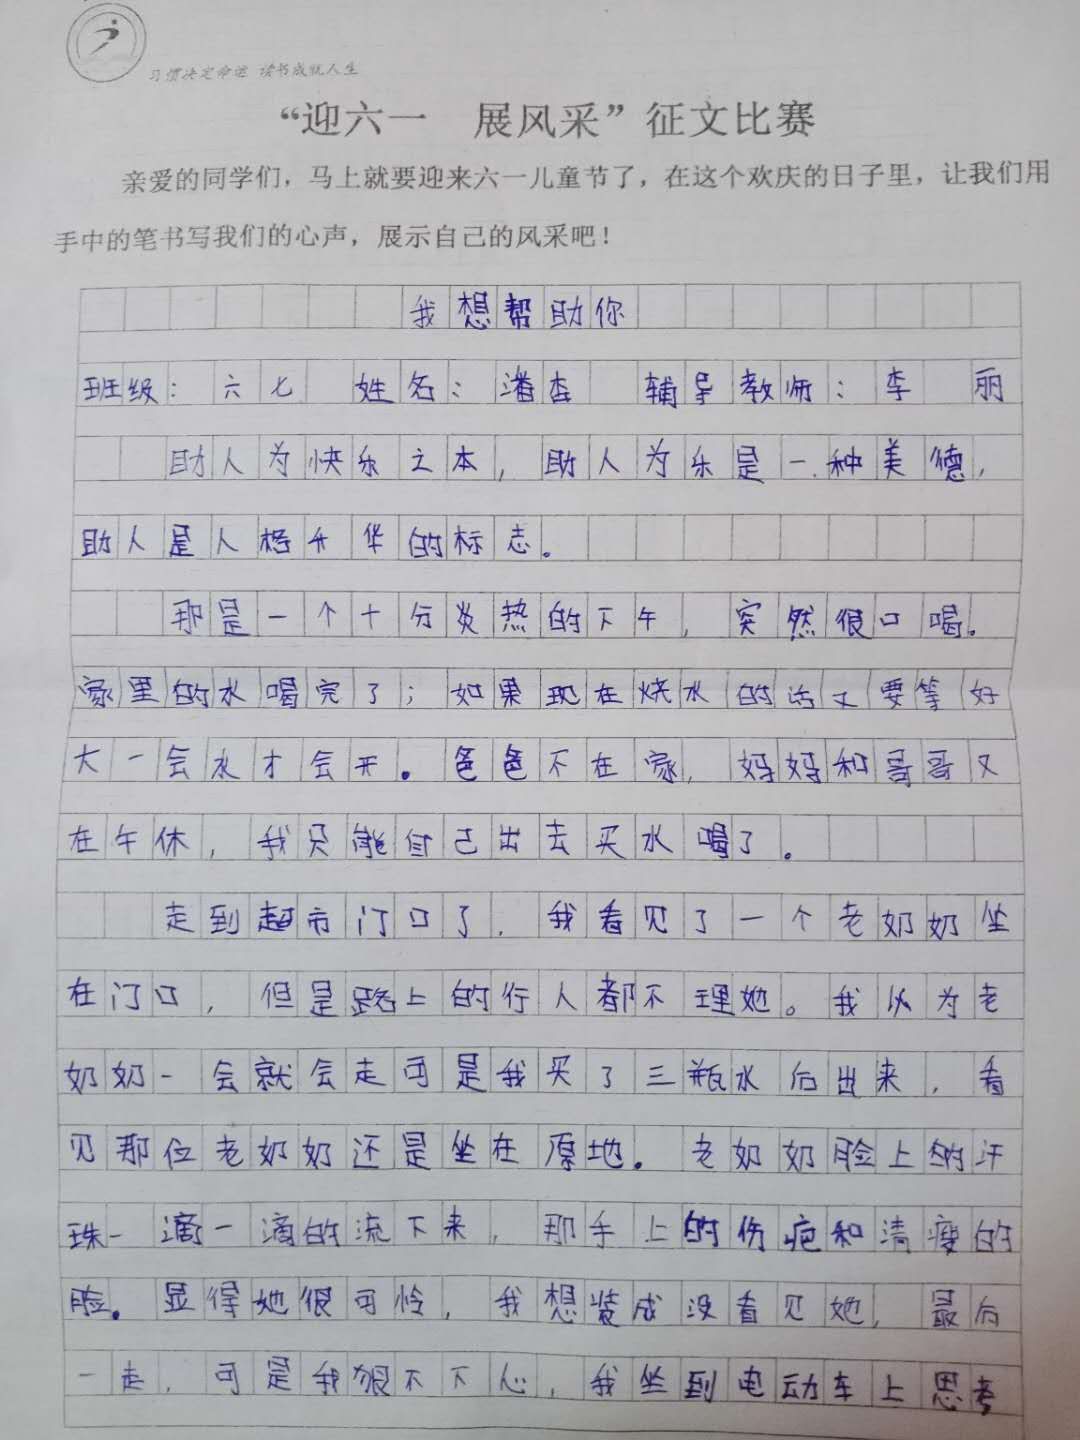 习惯决定命运 读书成就人生
“迎六一 展风采”征文比赛
亲爱的同学们，马上就要迎来六一儿童节了，在这个欢庆的日子里，让我们用
手中的笔书写我们的心声，展示自己的风采吧！
我想帮助你
班级：六七 姓名：潘杏 辅导教师：李 丽
助人为快乐之本，助人为乐是一种美德，
助人是人格升华的标志。
那是一个十分炎热的下午，突然很口喝。
家里的水喝完了；如果现在烧水的话又要等好
大一会水才会开。爸爸不在家，妈妈和哥哥又
在午休，我只能自己出去买水喝了。
走到超市门口了，我看见了一个老奶奶坐
在门口，但是路上的行人都不理她。我以为老
奶奶一会就会走可是我买了三瓶水后出来，看
见那位老奶奶还是坐在原地。老奶奶脸上的汗
珠一滴一滴的流下来，那手上的伤疤和清瘦的
脸。显得她很可怜，我想装成没看见她，最后
一走，可是我狠不下心，我坐到电动车上思考